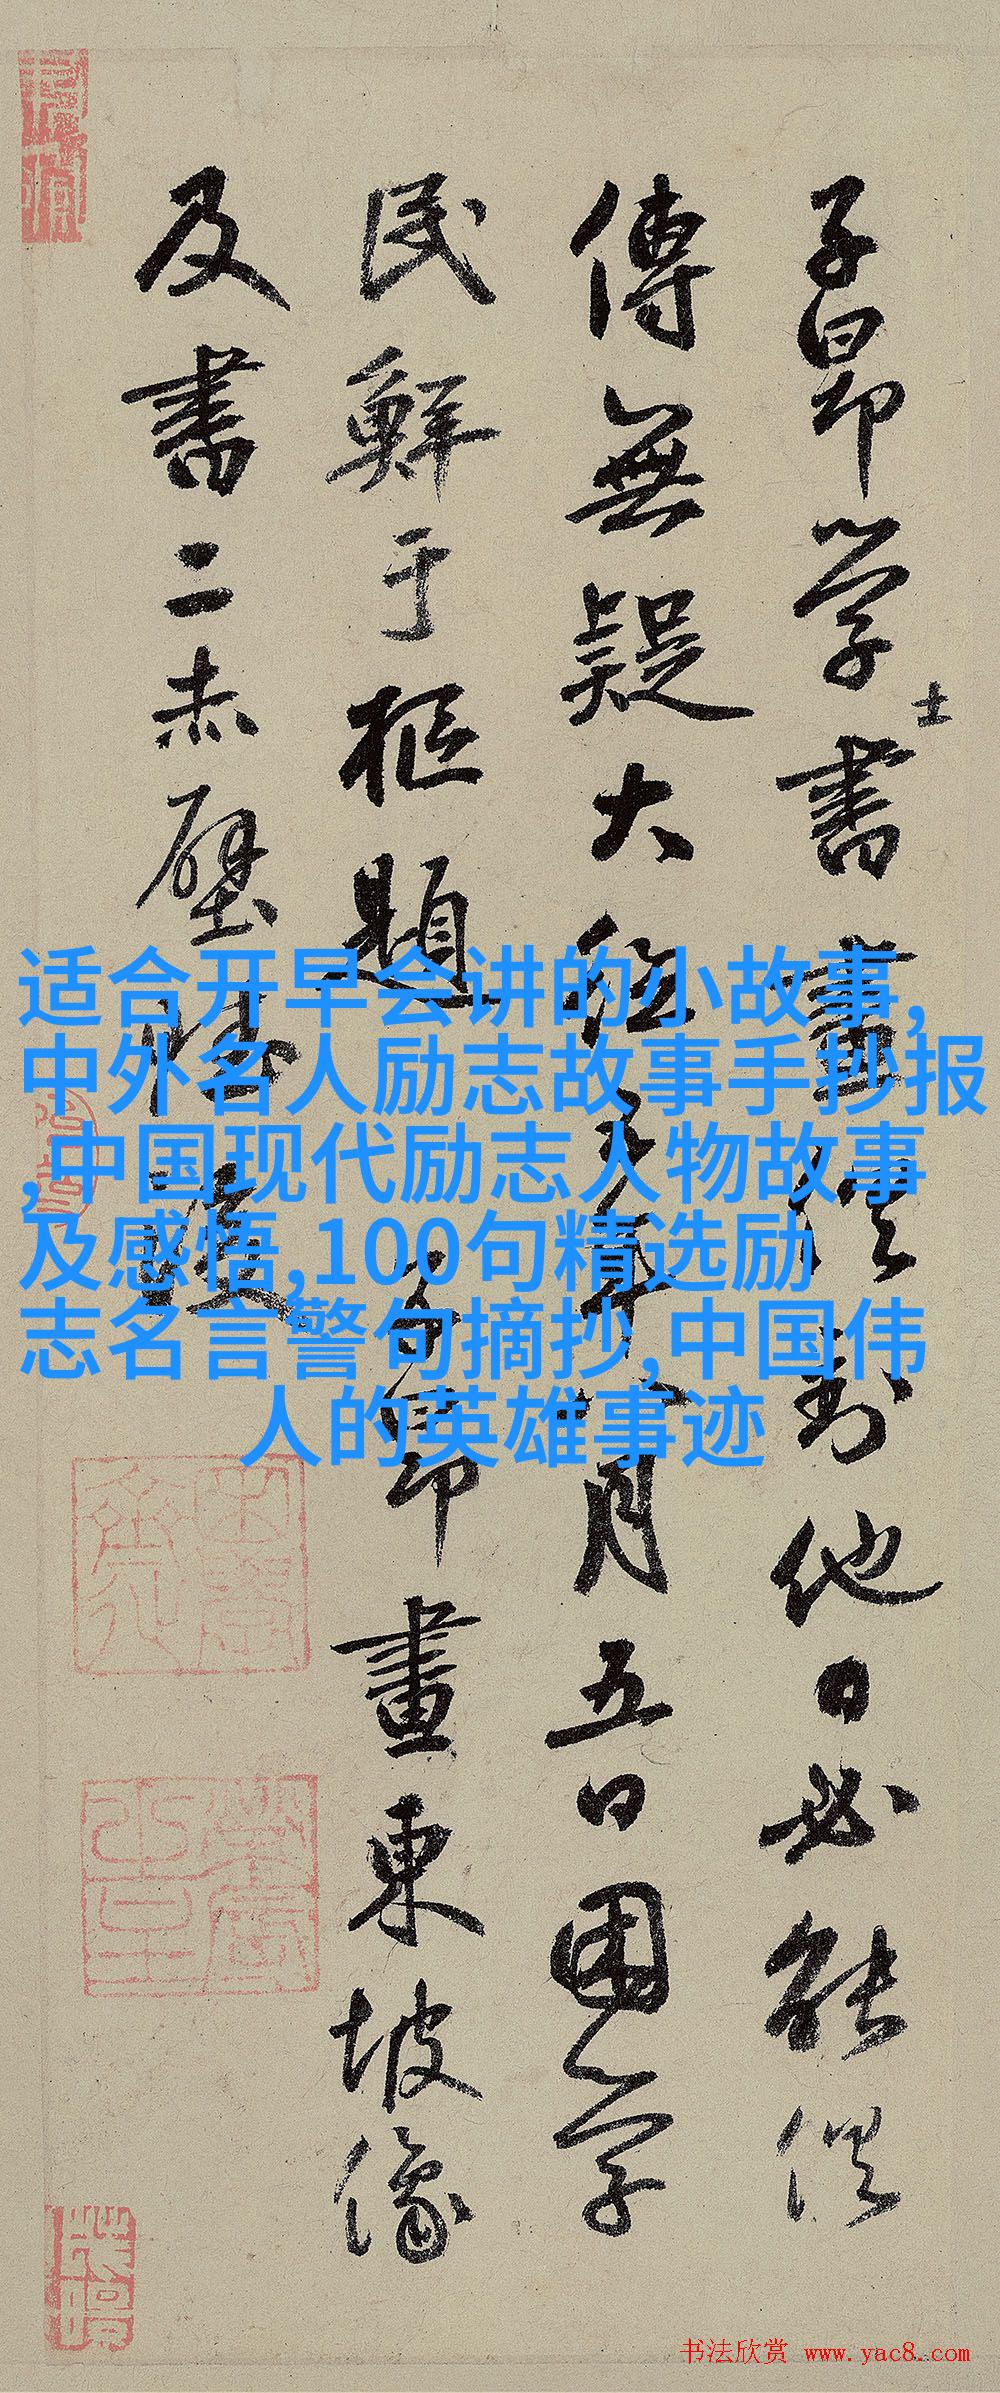 子昂学士書畫俱到他日必能俱
傳無疑大德五年八月五日困学
民鮮于樞題子昂畫東坡像
及書二赤壁賦後
适合开早会讲的小故事,
中外名人励志故事手抄报
,中国现代励志人物故事
及感悟,100句精选励
志名言警句摘抄,中国伟
人的英雄事迹
书法欣赏 www.yac8.com